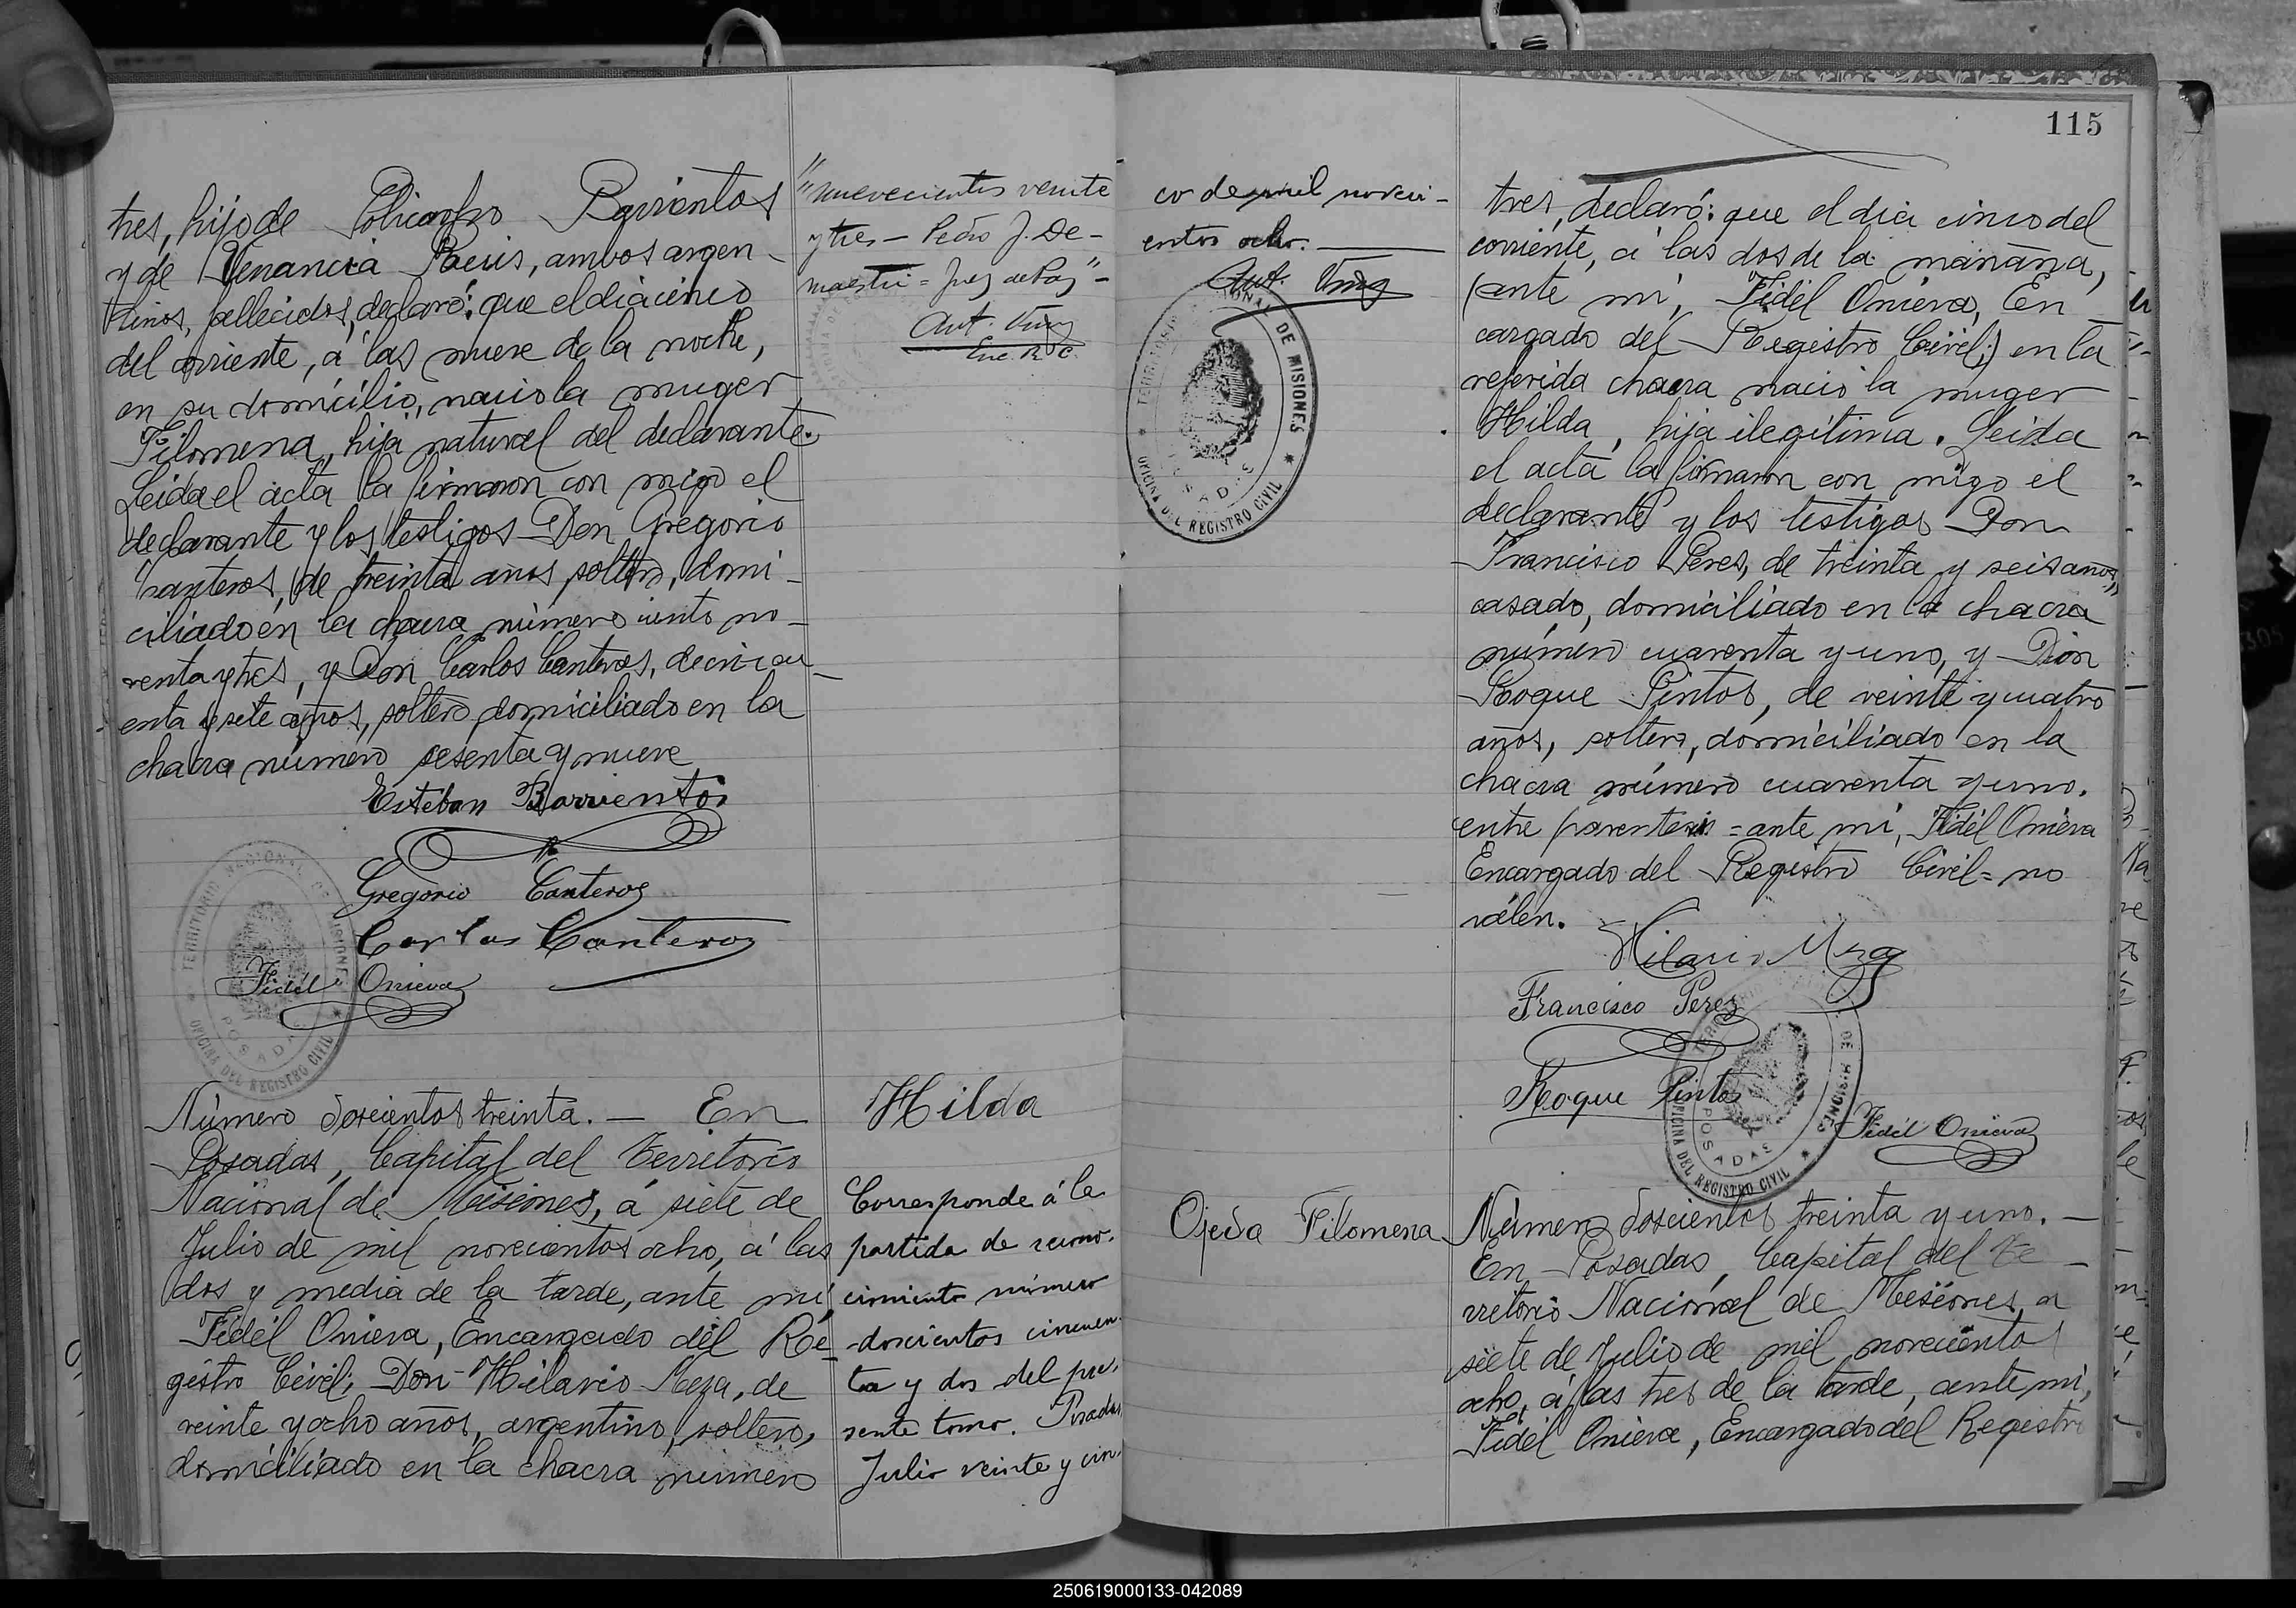 tres, hijo de Policarpo Barrientos
y de Venancia Reuis, ambos argen-
tinos, fallecidos, declaró: que el dia cinco
del corriente, á las nueve de la noche,
en su domicilio, nació la muger
Filomena, hija natural del declarante.
Leida el acta la firmaron con migo el
declarante y los testigos Don Gregorio
Canteros, de treinta años, soltero, domi-
ciliado en la chacra número ciento no-
venta y tres, y Don Carlos Canteros, de cincu-
enta y siete años, soltero, domiciliado en la
chacra número sesenta y nueve
Esteban Barrientos
Gregorio Canteros
Carlos Canteros
Fidél Onieva
TERRITORIO NACIONAL DE MISIONES
POSADAS
OFICINA DEL REGISTRO CIVIL
"nuevecientos veinte
y tres — Pedro J. De-
maestri = Juez de Paz" -
Ant.
Enc. R. C.
Número doscientos treinta. — En
Posadas, Capital del Territorio
Nacional de Misiones, á siete de
Julio de mil novecientos ocho, á las
dos y media de la tarde, ante mí,
Fidél Onieva, Encargado dél Re-
gistro Civil; Don Hilario Meza, de
veinte y ocho años, argentino, soltero,
domiciliado en la chacra número
Hilda
Corresponde á la
partida de recono-
cimiento número
doscientos cincuen-
ta y dos del pre-
sente tomo. Posadas
Julio veinte y cin-
co de mil noveci-
entos ocho.
Ant.
TERRITORIO NACIONAL DE MISIONES
POSADAS
OFICINA DEL REGISTRO CIVIL
115
tres, declaró: que el dia cinco del
corriente, á las dos de la mañana,
(ante mí, Fidél Onieva, En
cargado del Registro Civil;) en la
referida chacra nació la muger
Hilda, hija ilegítima. Leida
el acta la firmaron con migo el
declarante y los testigos Don
Francisco Peres, de treinta y seis años,
casado, domiciliado en la chacra
número cuarenta y uno, y Don
Roque Pintos, de veinte y cuatro
años, soltero, domiciliado en la
chacra número cuarenta y uno.
entre parentesis = ante mí, Fidél Onieva
Encargado del Registro Civil = no
válen.
Hilario Meza
Francisco Perez
Roque Pintos
Fidél Onieva
TERRITORIO NACIONAL DE MISIONES
POSADAS
OFICINA DEL REGISTRO CIVIL
Ojeda Filomena
Número doscientos treinta y uno. —
En Posadas, Capital del Te-
rritorio Nacional de Misiones, a
siete de Julio de mil novecientos
ocho, á las tres de la tarde, ante mí,
Fidél Onieva, Encargado del Registro
250619000133-042089